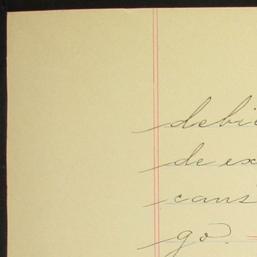 debi
de ex
cans
go.